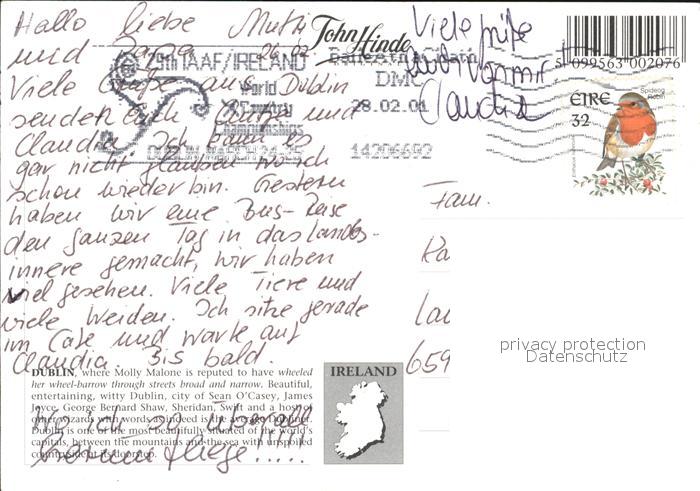 Hallo liebe Mutti
und Papa 26.02.
Viele Grüße aus Dublin
sendet Euch und
Claudia. Ich kann es
gar nicht glauben wo ich
schon wieder bin. Gestern
haben wir eine Bus-Reise
den ganzen Tag in das Landes-
innere gemacht, wir haben
viel gesehen. Viele Tiere und
viele Weiden. Ich sitze gerade
im Cafe und warte auf
Claudia. Bis bald.
Wo ich so überall
herum fliege!.....
John Hinde
Viele Grüße
auch von mir
Claudia
5 099563 002076
29th IAAF/IRELAND
World
Country
Championships
DUBLIN MARCH 24-25
Baile Átha Cliath
DMC
28.02.01
14206692
Spideog
Robin
ÉIRE
32
Fam.
Ra
Lau
659
privacy protection
Datenschutz
DUBLIN, where Molly Malone is reputed to have wheeled
her wheel-barrow through streets broad and narrow. Beautiful,
entertaining, witty Dublin, city of Sean O'Casey, James
Joyce, George Bernard Shaw, Sheridan, Swift and a host of
other wizards with words as indeed is the average Dubliner.
Dublin is one of the most beautifully situated of the world's
capitals, between the mountains and the sea with unspoiled
countryside at its doorstep.
IRELAND